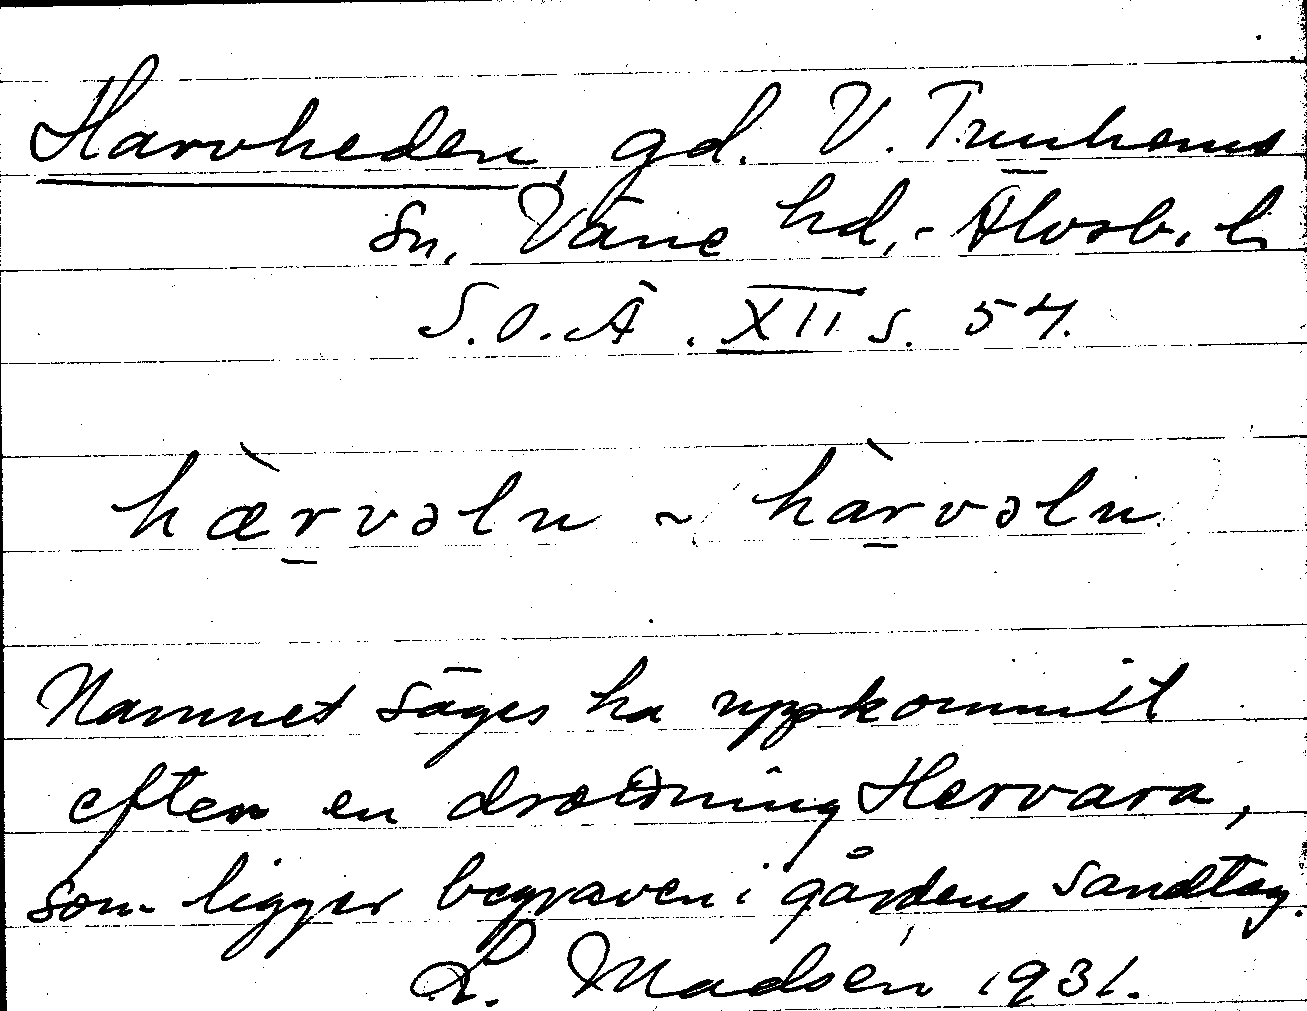 Harvheden, gd. V. Trunhems
sn, Väne hd, - Älvsb. l.
S.O.Ä. XII s. 57.
hæ̀rvəln ~ hàrvəln
Namnet säges ha uppkommit
efter en drottning Hervara,
som ligger begraven i gårdens sandtag.
L. Madsén 1931.